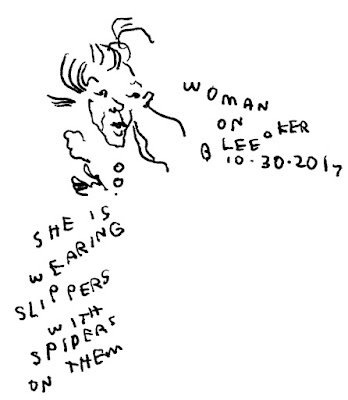 WOMAN
ON
BLEECKER
10·30·2017
SHE IS
WEARING
SLIPPERS
WITH
SPIDERS
ON THEM